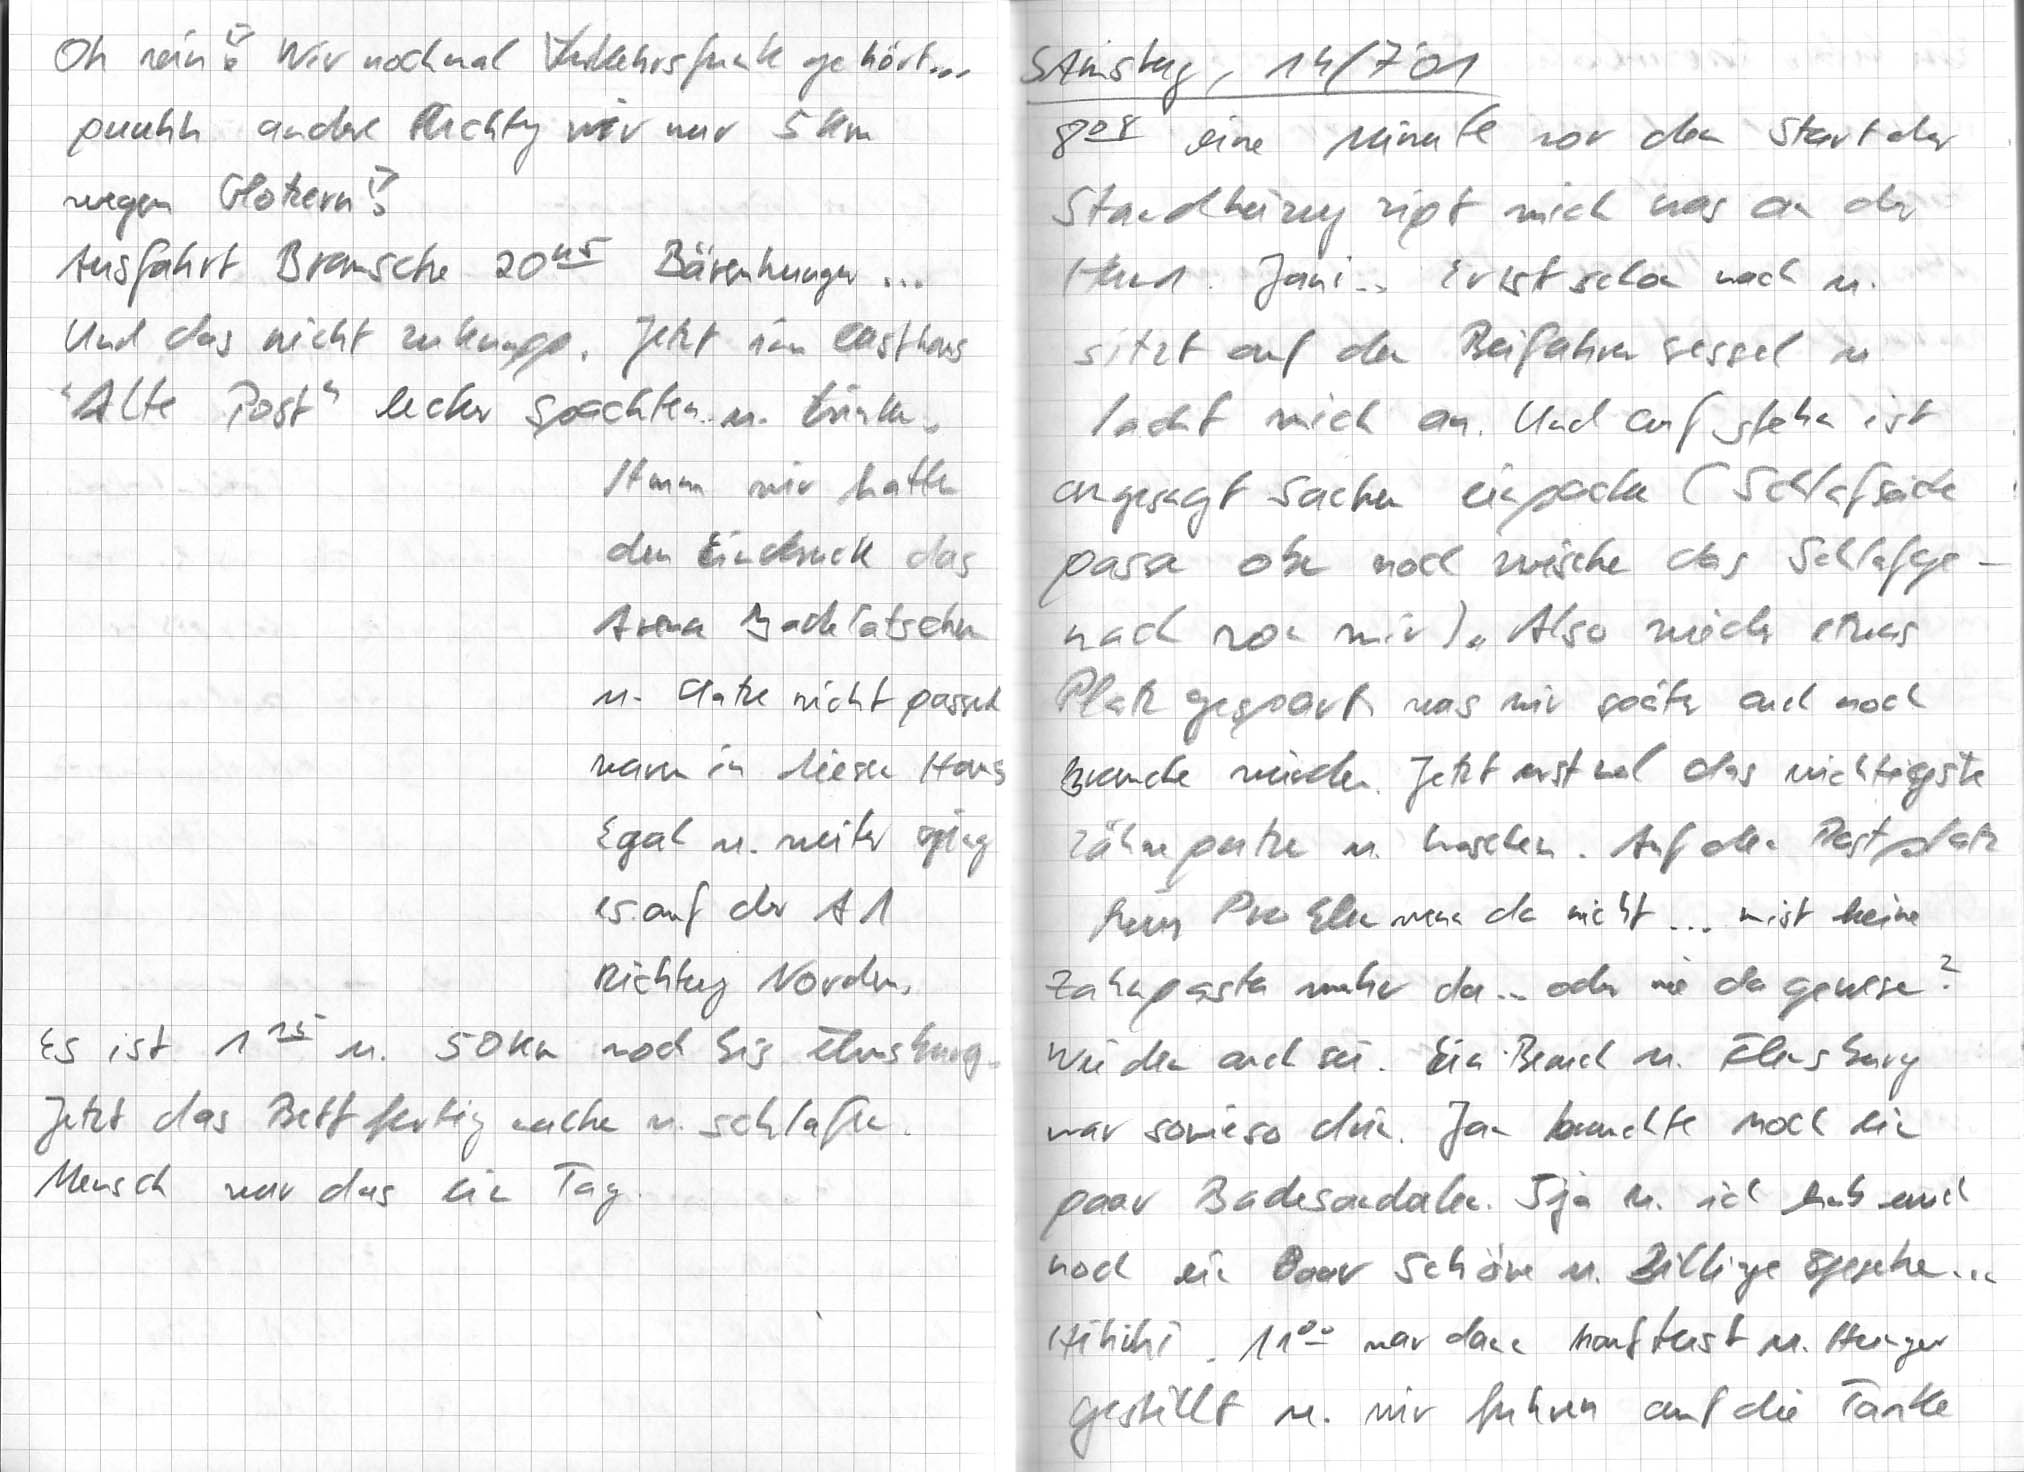 Oh nein! Wir nochmal Verkehrsfunk gehört...
puuhh andere Richtg wir nur 5 km
wegen Glotzern!
Ausfahrt Bramsche 20 45 Bärenhunger ...
Und das nicht zu knapp. Jetzt im Gasthaus
"Alte Post" lecker spachteln u. trinken.
Hmm wir hatten
den Eindruck das
Arena Badelatschen
u. nicht passend
waren in diesem Haus
Egal u. weiter ging
es auf der A1
Richtug Norden.
Es ist 1 15 u. 50 km noch bis Flensburg.
Jetzt das Bett fertig machen u. schlafen.
Mensch war das ein Tag.
Samstag, 14/7'01
8 08 eine Minute vor dem Start der
Standheizug zipt mich was an der
Hand. Jani.. Er ist schon wach u.
sitzt auf dem Beifahrersessel u
lacht mich an. Und aufstehen ist
angesagt Sachen einpacken (Schlafsäcke
passen oben noch zwischen das Schlafge-
mach von mir). Also wieder etwas
Platz gespart was wir später auch noch
brauchen würden. Jetzt erstmal das wichtigste
Zähne putzen u. waschen. Auf dem Rastplatz
kein Problem wenn da nicht ... mist keine
Zahnpasta mehr da.. oder nie da gewesen?
Wie dem auch sei. Ein Besuch in Flensburg
war sowieso drin. Jan brauchte noch ein
paar Badesandalen. Tja u. ich hab auch
noch ein Paar schöne u. Billige gesehen...
Hihihi. 11 00 war dann Kauflust u. Hunger
gestillt u. wir fuhren auf die Tanke